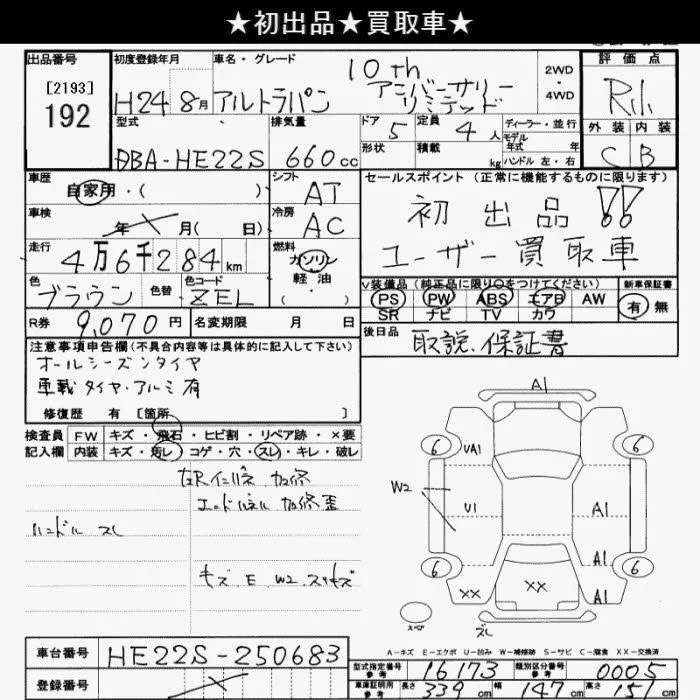 ★初出品★買取車★
出品番号
[2193]
192
初度登録年月
H24 8月
車名・グレード
アルトラパン
10th
アニバーサリー
リミテッド
2WD
・
4WD
評価点
R
外装 内装
C B
型式
DBA-HE22S
排気量
660cc
ドア
5
定員
4人
形状
積載
kg
ディーラー・並行
モデル
年式 年
ハンドル 左・右
車歴
自家用・( )
シフト
AT
車検
年 月( 日)
冷房
AC
走行
4万6千284km
燃料
ガソリン
軽・油
( )
色
ブラウン
色替
色コード
ZEL
セールスポイント (正常に機能するものに限ります)
初出品!!
ユーザー買取車
V装備品(純正品に限り○をつけてください)
PS PW ABS エアB AW
SR ナビ TV カワ
新車保証書
有 無
R券
9,070円
名変期限 月 日
後日品
取説、保証書
注意事項申告欄(不具合内容等は具体的に記入して下さい)
オールシーズンタイヤ
車載タイヤ・アルミ有
修復歴 有 [箇所 ]
検査員
記入欄
FW キズ・飛石・ヒビ割・リペア跡・×要
内装 キズ・汚レ・コゲ・穴・スレ・キレ・破レ
左Rインパネ加修
エンドパネル加修歪
ハンドル スレ
キズ E W2 スリキズ
A1
6 6
VA1
W2
V1 A1
A1
6 6
XX XX A1
スペア
スレ
A-キズ E-エクボ U-凹み W-補修跡 S-サビ C-腐食 XX-交換済
車台番号
HE22S-250683
登録番号
型式指定番号
参考
16173
類別区分番号
参考
0005
車庫証明用
参考
長さ 339cm
幅 147cm
高さ 151cm